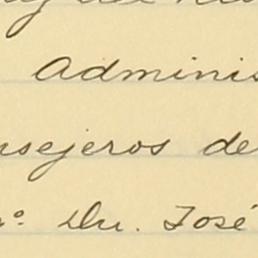 Adminis
nsejeros de
rº. Dn. José